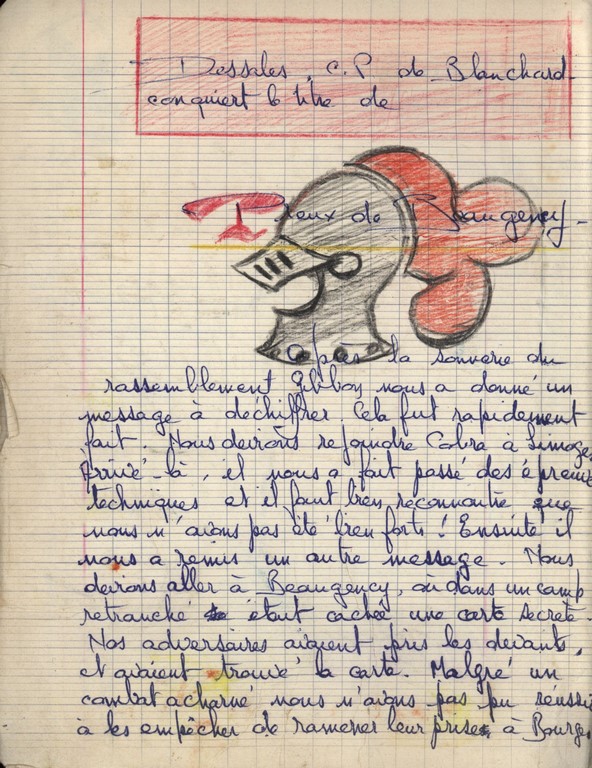 Dessales, C.P de Blanchard
conquiert le titre de
Preux de Beaugency -
Après la sonnerie du
rassemblement Gibbon nous a donné un
message à déchiffrer. Cela fut rapidement
fait. Nous devions rejoindre Cobra à Limoges
Arrivé - là, il nous a fait passé des épreuve
techniques et il faut bien reconnaitre que
nous n'avions pas été bien forts ! Ensuite il
nous a remis un autre message. Nous
devions aller à Beaugency, où dans un camp
retranché était cachée une carte secrète.
Nos adversaires avaient pris les devants,
et avaient trouvé la carte. Malgré un
combat acharné nous n'avions pas pu réussi
à les empêcher de ramener leur prise à Bourges